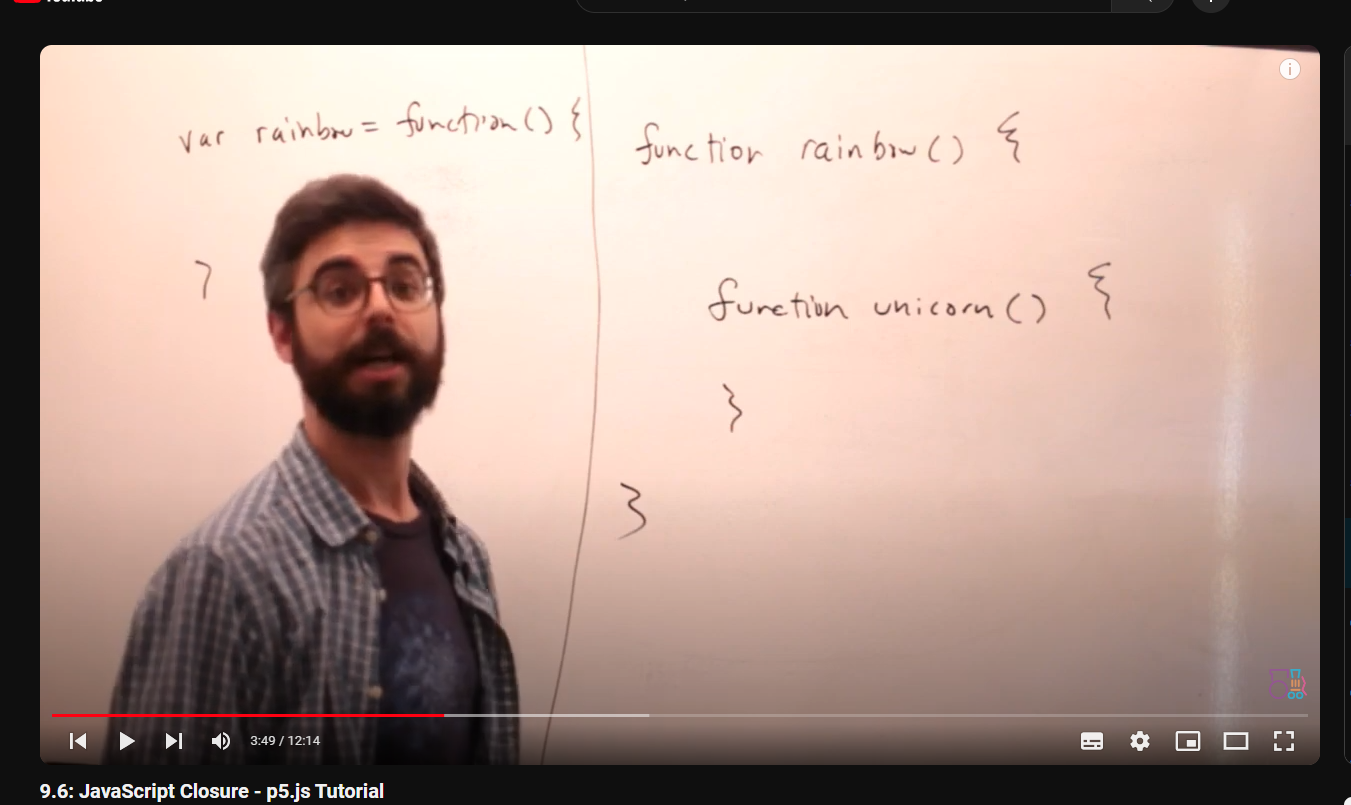 var rainbow = function() {
}
function rainbow() {
function unicorn() {
}
}
3:49 / 12:14
9.6: JavaScript Closure - p5.js Tutorial